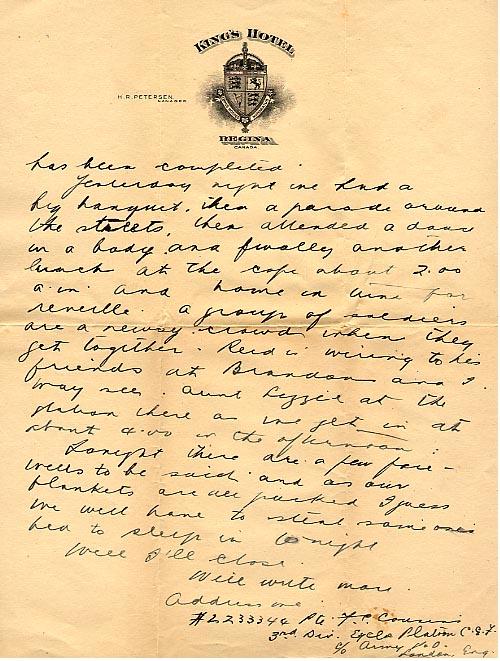 KING'S HOTEL
H. R. PETERSEN
MANAGER
REGINA
CANADA
has been completed.
Yesterday night we had a
big banquet, then a parade around
the streets, then attended a dance
in a body and finally another
lunch at the cafe about 2.00
a.m. and home in time for
reveille. A group of soldiers
are a newsy crowd when they
get together. Reid is wiring to his
friends at Brandon and I
may see Aunt Lizzie at the
station there as we get in at
about 4.00 in the afternoon.
Tonight there are a few fare-
wells to be said and as our
blankets are all packed I guess
we will have to steal someones
bed to sleep in tonight
Well I'll close.
Will write more.
Address me:
#2233344 Pte. F.C. Cousins
3rd Div. Cycle Platoon C.E.F.
c/o Army P.O.
London, Eng.